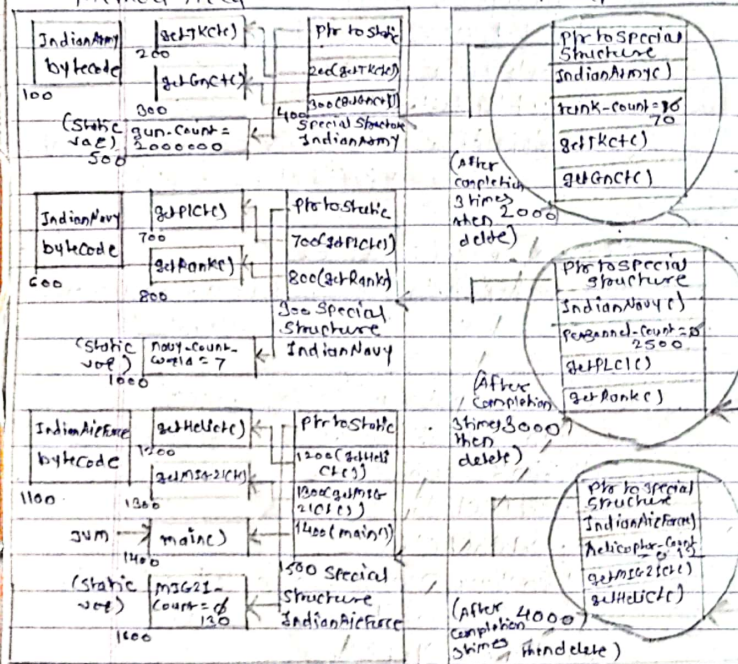 IndianArmy
bytecode
100
getTKCt()
200
getGnCt()
300
(Static
var)
500
gun-count =
2000000
Ptr to Static
200(getTKCt())
300(getGnCt())
400
Special Structure
IndianArmy
Ptr to Special
Structure
IndianArmy()
tank-count =
70
getTKCt()
getGnCt()
(After
completion
3 times
then
delete)
2000
IndianNavy
byteCode
600
getPlCt()
700
getRank()
800
(Static
var)
1000
navy-count-
world = 7
Ptr to Static
700(getPlCt())
800(getRank)
900 Special
Structure
IndianNavy
Ptr to Special
Structure
IndianNavy()
Personnel-Count =
2500
getPLCt()
getRank()
(After
Completion
3 times
then
delete)
3000
IndianAirForce
bytecode
1100
getHeliCt()
1200
getMIG-21Ct()
1300
JVM
main()
1400
(Static
var)
MIG21-
Count = 0
130
1600
Ptr to Static
1200(getHeli
Ct())
1300(getMIG
21Ct())
1400(main())
1500 Special
Structure
IndianAirForce
Ptr to Special
Structure
IndianAirForce()
Helicopter-Count
getMIG21Ct()
getHeliCt()
(After
Completion
3 times then delete)
4000